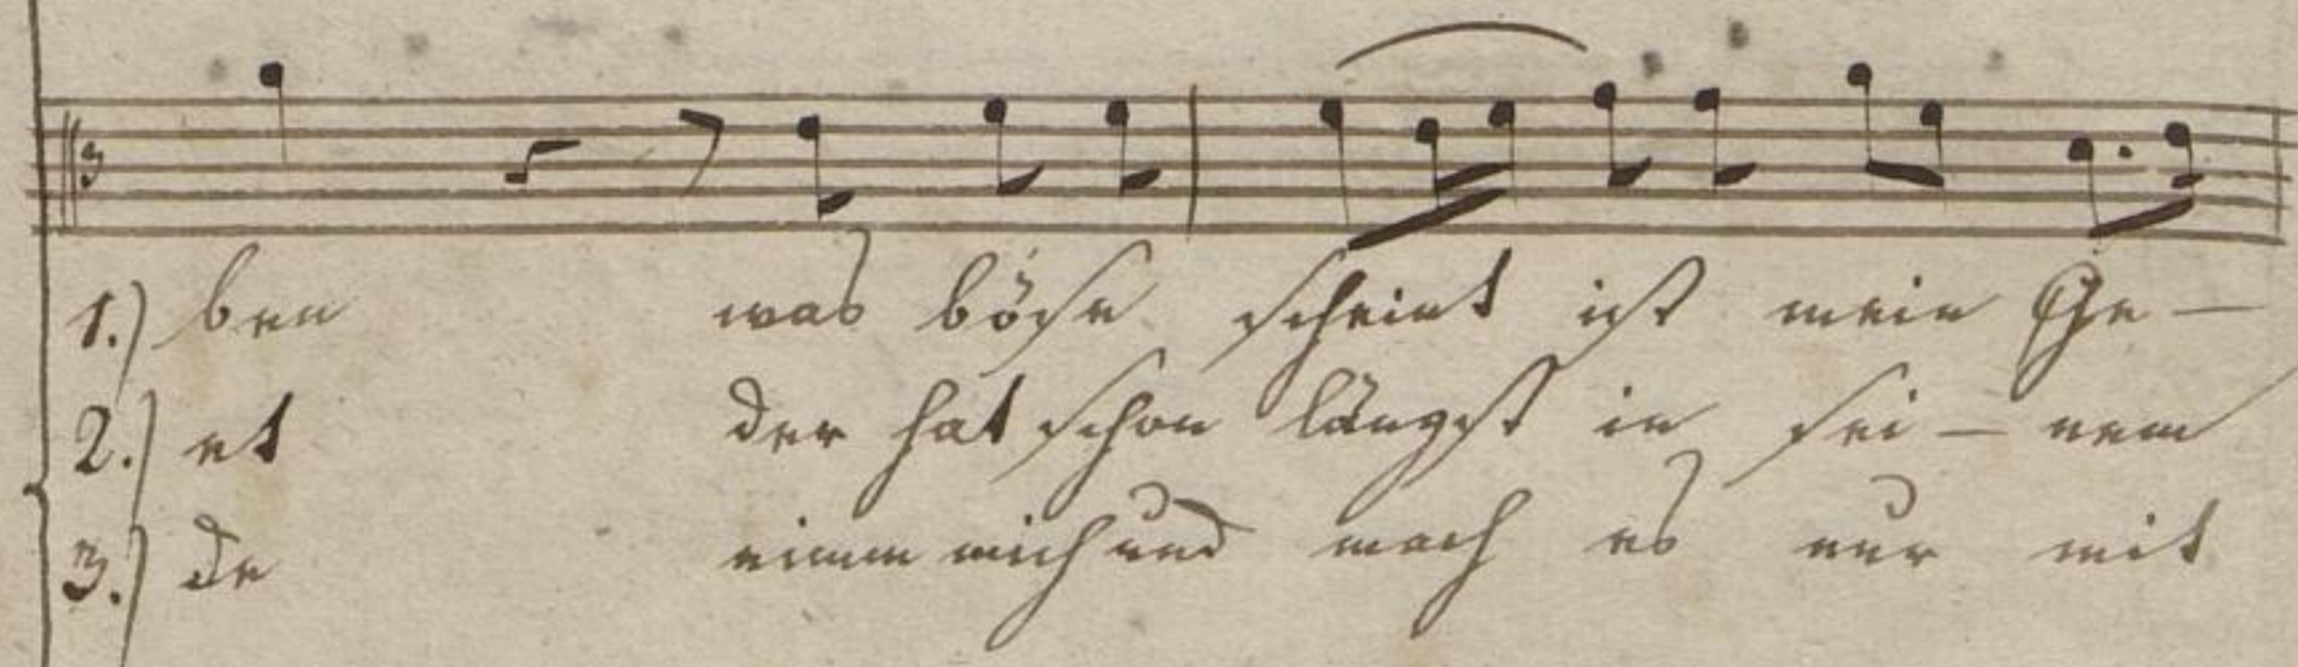 1.) ben was böse scheint ist mein Ge-
2.) et der hat schon längst in sei-nem
3.) de nimm mich und mach es nur mit